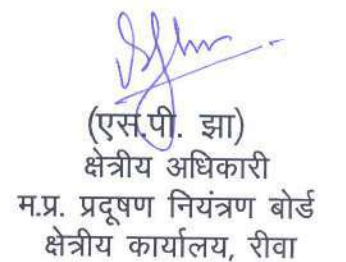 (एस.पी. झा)
क्षेत्रीय अधिकारी
म.प्र. प्रदूषण नियंत्रण बोर्ड
क्षेत्रीय कार्यालय, रीवा